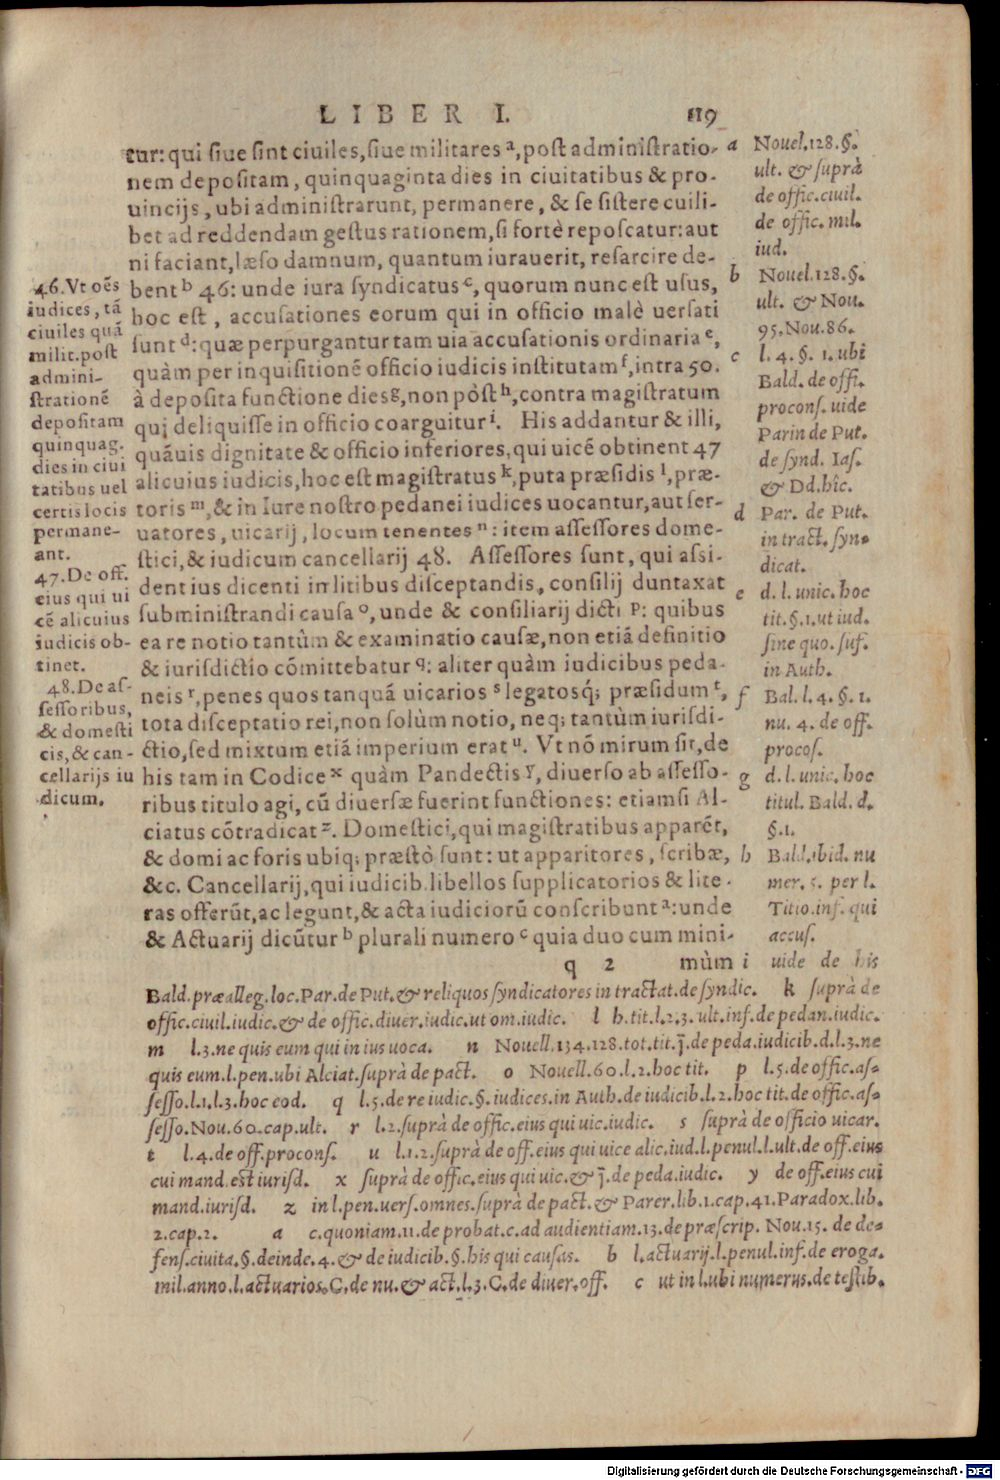 LIBER I. 119
tur: qui siue sint ciuiles, siue militares a, post administratio-
nem depositam, quinquaginta dies in ciuitatibus & pro-
uincijs, ubi administrarunt, permanere, & se sistere cuili-
bet ad reddendam gestus rationem, si fortè reposcatur: aut
ni faciant, læso damnum, quantum iurauerit, resarcire de-
bent b 46: unde iura syndicatus c, quorum nunc est usus,
hoc est, accusationes eorum qui in officio malè uersati
sunt d: quæ perpurgantur tam uia accusationis ordinaria e,
quàm per inquisitionē officio iudicis institutam f, intra 50.
à deposita functione dies g, non pòst h, contra magistratum
qui deliquisse in officio coarguitur i. His addantur & illi,
quāuis dignitate & officio inferiores, qui uicē obtinent 47
alicuius iudicis, hoc est magistratus k, puta præsidis l, præ-
toris m, & in Iure nostro pedanei iudices uocantur, aut ser-
uatores, uicarij, locum tenentes n: item assessores dome-
stici, & iudicum cancellarij 48. Assessores sunt, qui assi-
dent ius dicenti in litibus disceptandis, consilij duntaxat
subministrandi causa o, unde & consiliarij dicti p: quibus
ea re notio tantùm & examinatio causæ, non etiā definitio
& iurisdictio cōmittebatur q: aliter quàm iudicibus peda-
neis r, penes quos tanquā uicarios s legatosq; præsidum t,
tota disceptatio rei, non solùm notio, neq; tantùm iurisdi-
ctio, sed mixtum etiā imperium erat u. Vt nō mirum sit, de
his tam in Codice x quàm Pandectis y, diuerso ab assesso-
ribus titulo agi, cū diuersæ fuerint functiones: etiamsi Al-
ciatus cōtradicat z. Domestici, qui magistratibus apparēt,
& domi ac foris ubiq; præstò sunt: ut apparitores, scribæ,
&c. Cancellarij, qui iudicib. libellos supplicatorios & lite-
ras offerūt, ac legunt, & acta iudiciorū conscribunt a: unde
& Actuarij dicūtur b plurali numero c quia duo cum mini-
q 2 mùm
46. Vt oēs
iudices, tā
ciuiles quā
milit. post
admini-
strationē
depositam
quinquag.
dies in ciui
tatibus uel
certis locis
permane-
ant.
47. De off.
eius qui ui
cē alicuius
iudicis ob-
tinet.
48. De as-
sessoribus,
& domesti
cis, & can-
cellarijs iu
dicum.
a Nouel. 128. §.
ult. & suprà
de offic. ciuil.
de offic. mil.
iud.
b Nouel. 128. §.
ult. & Nou.
95. Nou. 86.
c l. 4. §. 1. ubi
Bald. de offi.
procons. uide
Parin de Put.
de synd. Ias.
& Dd. hîc.
d Par. de Put.
in tract. syn-
dicat.
e d. l. unic. hoc
tit. §. 1. ut iud.
sine quo. suf.
in Auth.
f Bal. l. 4. §. 1.
nu. 4. de off.
procos.
g d. l. unic. hoc
titul. Bald. d.
§. 1.
h Bald. ibid. nu
mer. 5. per l.
Titio. inf. qui
accus.
i uide de his
Bald. præalleg. loc. Par. de Put. & reliquos syndicatores in tractat. de syndic. k suprà de
offic. ciuil. iudic. & de offic. diuer. iudic. ut om. iudic. l h. tit. l. 2. 3. ult. inf. de pedan. iudic.
m l. 3. ne quis eum qui in ius uoca. n Nouell. 134. 128. tot. tit. j. de peda. iudicib. d. l. 3. ne
quis eum. l. pen. ubi Alciat. suprà de pact. o Nouell. 60. l. 2. hoc tit. p l. 5. de offic. as-
sesso. l. 1. l. 3. hoc eod. q l. 5. de re iudic. §. iudices. in Auth. de iudicib. l. 2. hoc tit. de offic. as-
sesso. Nou. 60. cap. ult. r l. 2. suprà de offic. eius qui uic. iudic. s suprà de officio uicar.
t l. 4. de off. procons. u l. 1. 2. suprà de off. eius qui uice alic. iud. l. penul. l. ult. de off. eius
cui mand. est iurisd. x suprà de offic. eius qui uic. & j. de peda. iudic. y de off. eius cui
mand. iurisd. z in l. pen. uers. omnes. suprà de pact. & Parer. lib. 1. cap. 41. Paradox. lib.
2. cap. 2. a c. quoniam. 11. de probat. c. ad audientiam. 13. de præscrip. Nou. 15. de de-
fens. ciuita. §. deinde. 4. & de iudicib. §. his qui causas. b l. actuarij. l. penul. inf. de eroga.
mil. anno. l. actuarios. C. de nu. & act. l. 3. C. de diuer. off. c ut in l. ubi numerus. de testib.
Digitalisierung gefördert durch die Deutsche Forschungsgemeinschaft - DFG